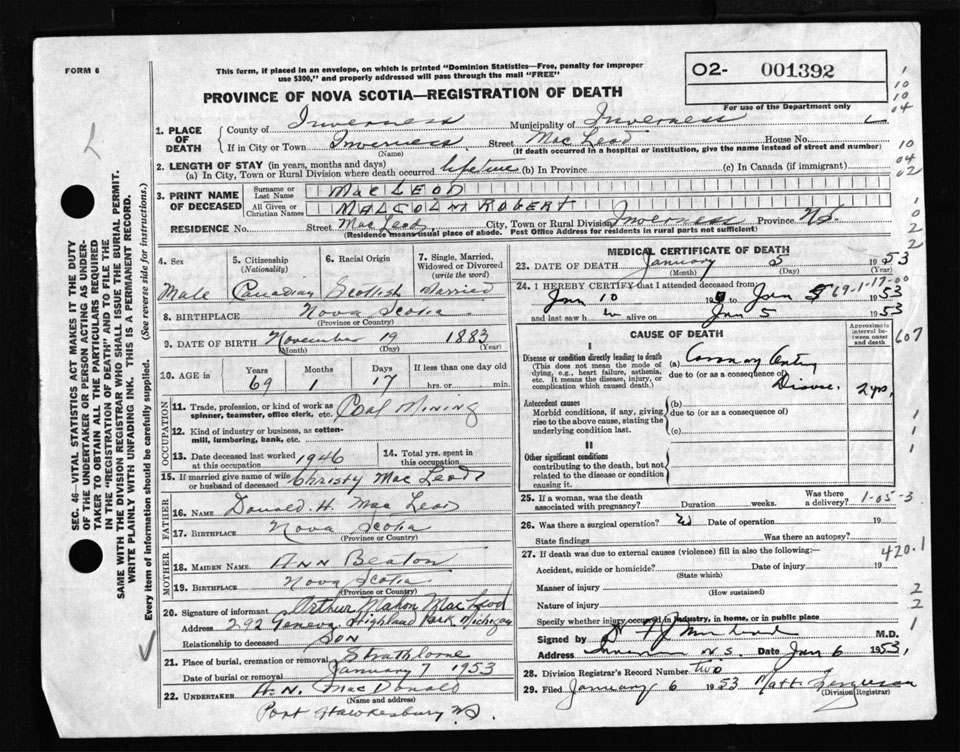 FORM 6
This form, if placed in an envelope, on which is printed "Dominion Statistics—Free, penalty for improper
use $300," and properly addressed will pass through the mail "FREE"
O2- 001392
For use of the Department only
PROVINCE OF NOVA SCOTIA—REGISTRATION OF DEATH
1. PLACE OF DEATH
County of Inverness Municipality of Inverness
If in City or Town Inverness Street Mac Leod House No.
(Name) (If death occurred in a hospital or institution, give the name instead of street and number)
2. LENGTH OF STAY (in years, months and days)
(a) In City, Town or Rural Division where death occurred lifetime (b) In Province (c) In Canada (if immigrant)
3. PRINT NAME OF DECEASED
Surname or Last Name MacLEOD
All Given or Christian Names MALCOLM ROBERT
RESIDENCE No. Street MacLeod City, Town or Rural Division Inverness Province N.S.
(Residence means usual place of abode. Post Office Address for residents in rural parts not sufficient)
4. Sex Male
5. Citizenship (Nationality) Canadian
6. Racial Origin Scottish
7. Single, Married, Widowed or Divorced (write the word) Married
8. BIRTHPLACE Nova Scotia
(Province or Country)
9. DATE OF BIRTH November 19 1883
(Month) (Day) (Year)
10. AGE Years Months Days If less than one day old
69 1 17 hrs. or min.
OCCUPATION
11. Trade, profession, or kind of work as spinner, teamster, office clerk, etc. Coal Mining
12. Kind of industry or business, as cotton-mill, lumbering, bank, etc.
13. Date deceased last worked at this occupation 1946
14. Total yrs. spent in this occupation
15. If married give name of wife or husband of deceased Christy Mac Leod
FATHER
16. NAME Donald H. Mac Leod
17. BIRTHPLACE Nova Scotia
(Province or Country)
MOTHER
18. MAIDEN NAME Ann Beaton
19. BIRTHPLACE Nova Scotia
(Province or Country)
20. Signature of informant Arthur Mahon MacLeod
Address 292 Geneva, Highland Park Michigan
Relationship to deceased Son
21. Place of burial, cremation or removal Strathlorne
Date of burial or removal January 7 1953
22. UNDERTAKER H.N. MacDonald
(Name and address)
Port Hawkesbury N.S.
MEDICAL CERTIFICATE OF DEATH
23. DATE OF DEATH January 5 1953
(Month) (Day) (Year)
24. I HEREBY CERTIFY that I attended deceased from
Jan 10 19 Jan 5 1953
69-1-17-00
and last saw h alive on Jan 5 1953
CAUSE OF DEATH
Approximate interval between onset and death
607
I
Disease or condition directly leading to death (a) Coronary Artery
(This does not mean the mode of dying, e.g., heart failure, asthenia, etc. It means the disease, injury, or complication which caused death.)
due to (or as a consequence of) Disease 2 yrs.
Antecedent causes
Morbid conditions, if any, giving rise to the above cause, stating the underlying condition last.
(b)
due to (or as a consequence of)
(c)
II
Other significant conditions
contributing to the death, but not related to the disease or condition causing it.
25. If a woman, was the death associated with pregnancy? Duration weeks. Was there a delivery?
1-05-3
26. Was there a surgical operation? Date of operation 19
State findings Was there an autopsy?
27. If death was due to external causes (violence) fill in also the following:—
420.1
Accident, suicide or homicide? Date of injury 19
(State which)
Manner of injury
(How sustained)
Nature of injury
Specify whether injury occurred in industry, in home, or in public place
Signed by M.D.
Address N.S. Date Jan 6 1953
28. Division Registrar's Record Number two
29. Filed January 6 1953 Matt. Ferguson
(Division Registrar)
SEC. 46—VITAL STATISTICS ACT MAKES IT THE DUTY
OF THE UNDERTAKER OR PERSON ACTING AS UNDER-
TAKER TO OBTAIN ALL THE PARTICULARS REQUIRED
IN THE "REGISTRATION OF DEATH" AND TO FILE THE
SAME WITH THE DIVISION REGISTRAR WHO SHALL ISSUE THE BURIAL PERMIT.
WRITE PLAINLY WITH UNFADING INK. THIS IS A PERMANENT RECORD.
Every item of information should be carefully supplied. (See reverse side for instructions.)